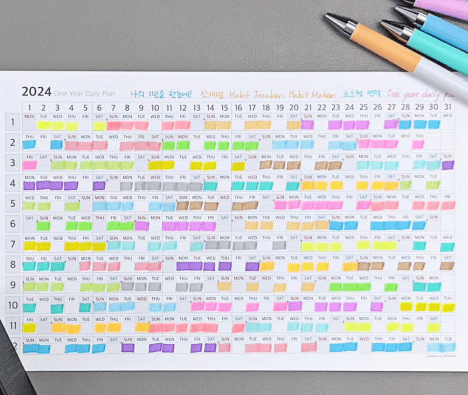 2024 One Year Daily Plan 나의 1년을 한눈에 신개념 Habit Tracker, Habit Maker One year daily
1 2 3 4 5 6 7 8 9 10 11 12 13 14 15 16 17 18 19 20 21 22 23 24 25 26 27 28 29 30 31
1 MON TUE WED THU FRI SAT SUN MON TUE WED THU FRI SAT SUN MON TUE WED THU FRI SAT SUN MON TUE WED THU FRI SAT SUN MON TUE WED
2 THU FRI SAT SUN MON TUE WED THU FRI SAT SUN MON TUE WED THU FRI SAT SUN MON TUE WED THU FRI SAT SUN MON TUE WED THU
3 FRI SAT SUN MON TUE WED THU FRI SAT SUN MON TUE WED THU FRI SAT SUN MON TUE WED THU FRI SAT SUN MON TUE WED THU FRI SAT SUN
4 MON TUE WED THU FRI SAT SUN MON TUE WED THU FRI SAT SUN MON TUE WED THU FRI SAT SUN MON TUE WED THU FRI SAT SUN MON TUE
5 WED THU FRI SAT SUN MON TUE WED THU FRI SAT SUN MON TUE WED THU FRI SAT SUN MON TUE WED THU FRI SAT SUN MON TUE WED THU FRI
6 SAT SUN MON TUE WED THU FRI SAT SUN MON TUE WED THU FRI SAT SUN MON TUE WED THU FRI SAT SUN MON TUE WED THU FRI SAT SUN
7 MON TUE WED THU FRI SAT SUN MON TUE WED THU FRI SAT SUN MON TUE WED THU FRI SAT SUN MON TUE WED THU FRI SAT SUN MON TUE WED
8 THU FRI SAT SUN MON TUE WED THU FRI SAT SUN MON TUE WED THU FRI SAT SUN MON TUE WED THU FRI SAT SUN MON TUE WED THU FRI SAT
9 SUN MON TUE WED THU FRI SAT SUN MON TUE WED THU FRI SAT SUN MON TUE WED THU FRI SAT SUN MON TUE WED THU FRI SAT SUN MON
10 TUE WED THU FRI SAT SUN MON TUE WED THU FRI SAT SUN MON TUE WED THU FRI SAT SUN MON TUE WED THU FRI SAT SUN MON TUE WED THU
11 FRI SAT SUN MON TUE WED THU FRI SAT SUN MON TUE WED THU FRI SAT SUN MON TUE WED THU FRI SAT SUN MON TUE WED THU FRI SAT
2 SUN MON TUE WED THU FRI SAT SUN MON TUE WED THU FRI SAT SUN MON TUE WED THU FRI SAT SUN MON TUE WED THU FRI SAT SUN MON TUE